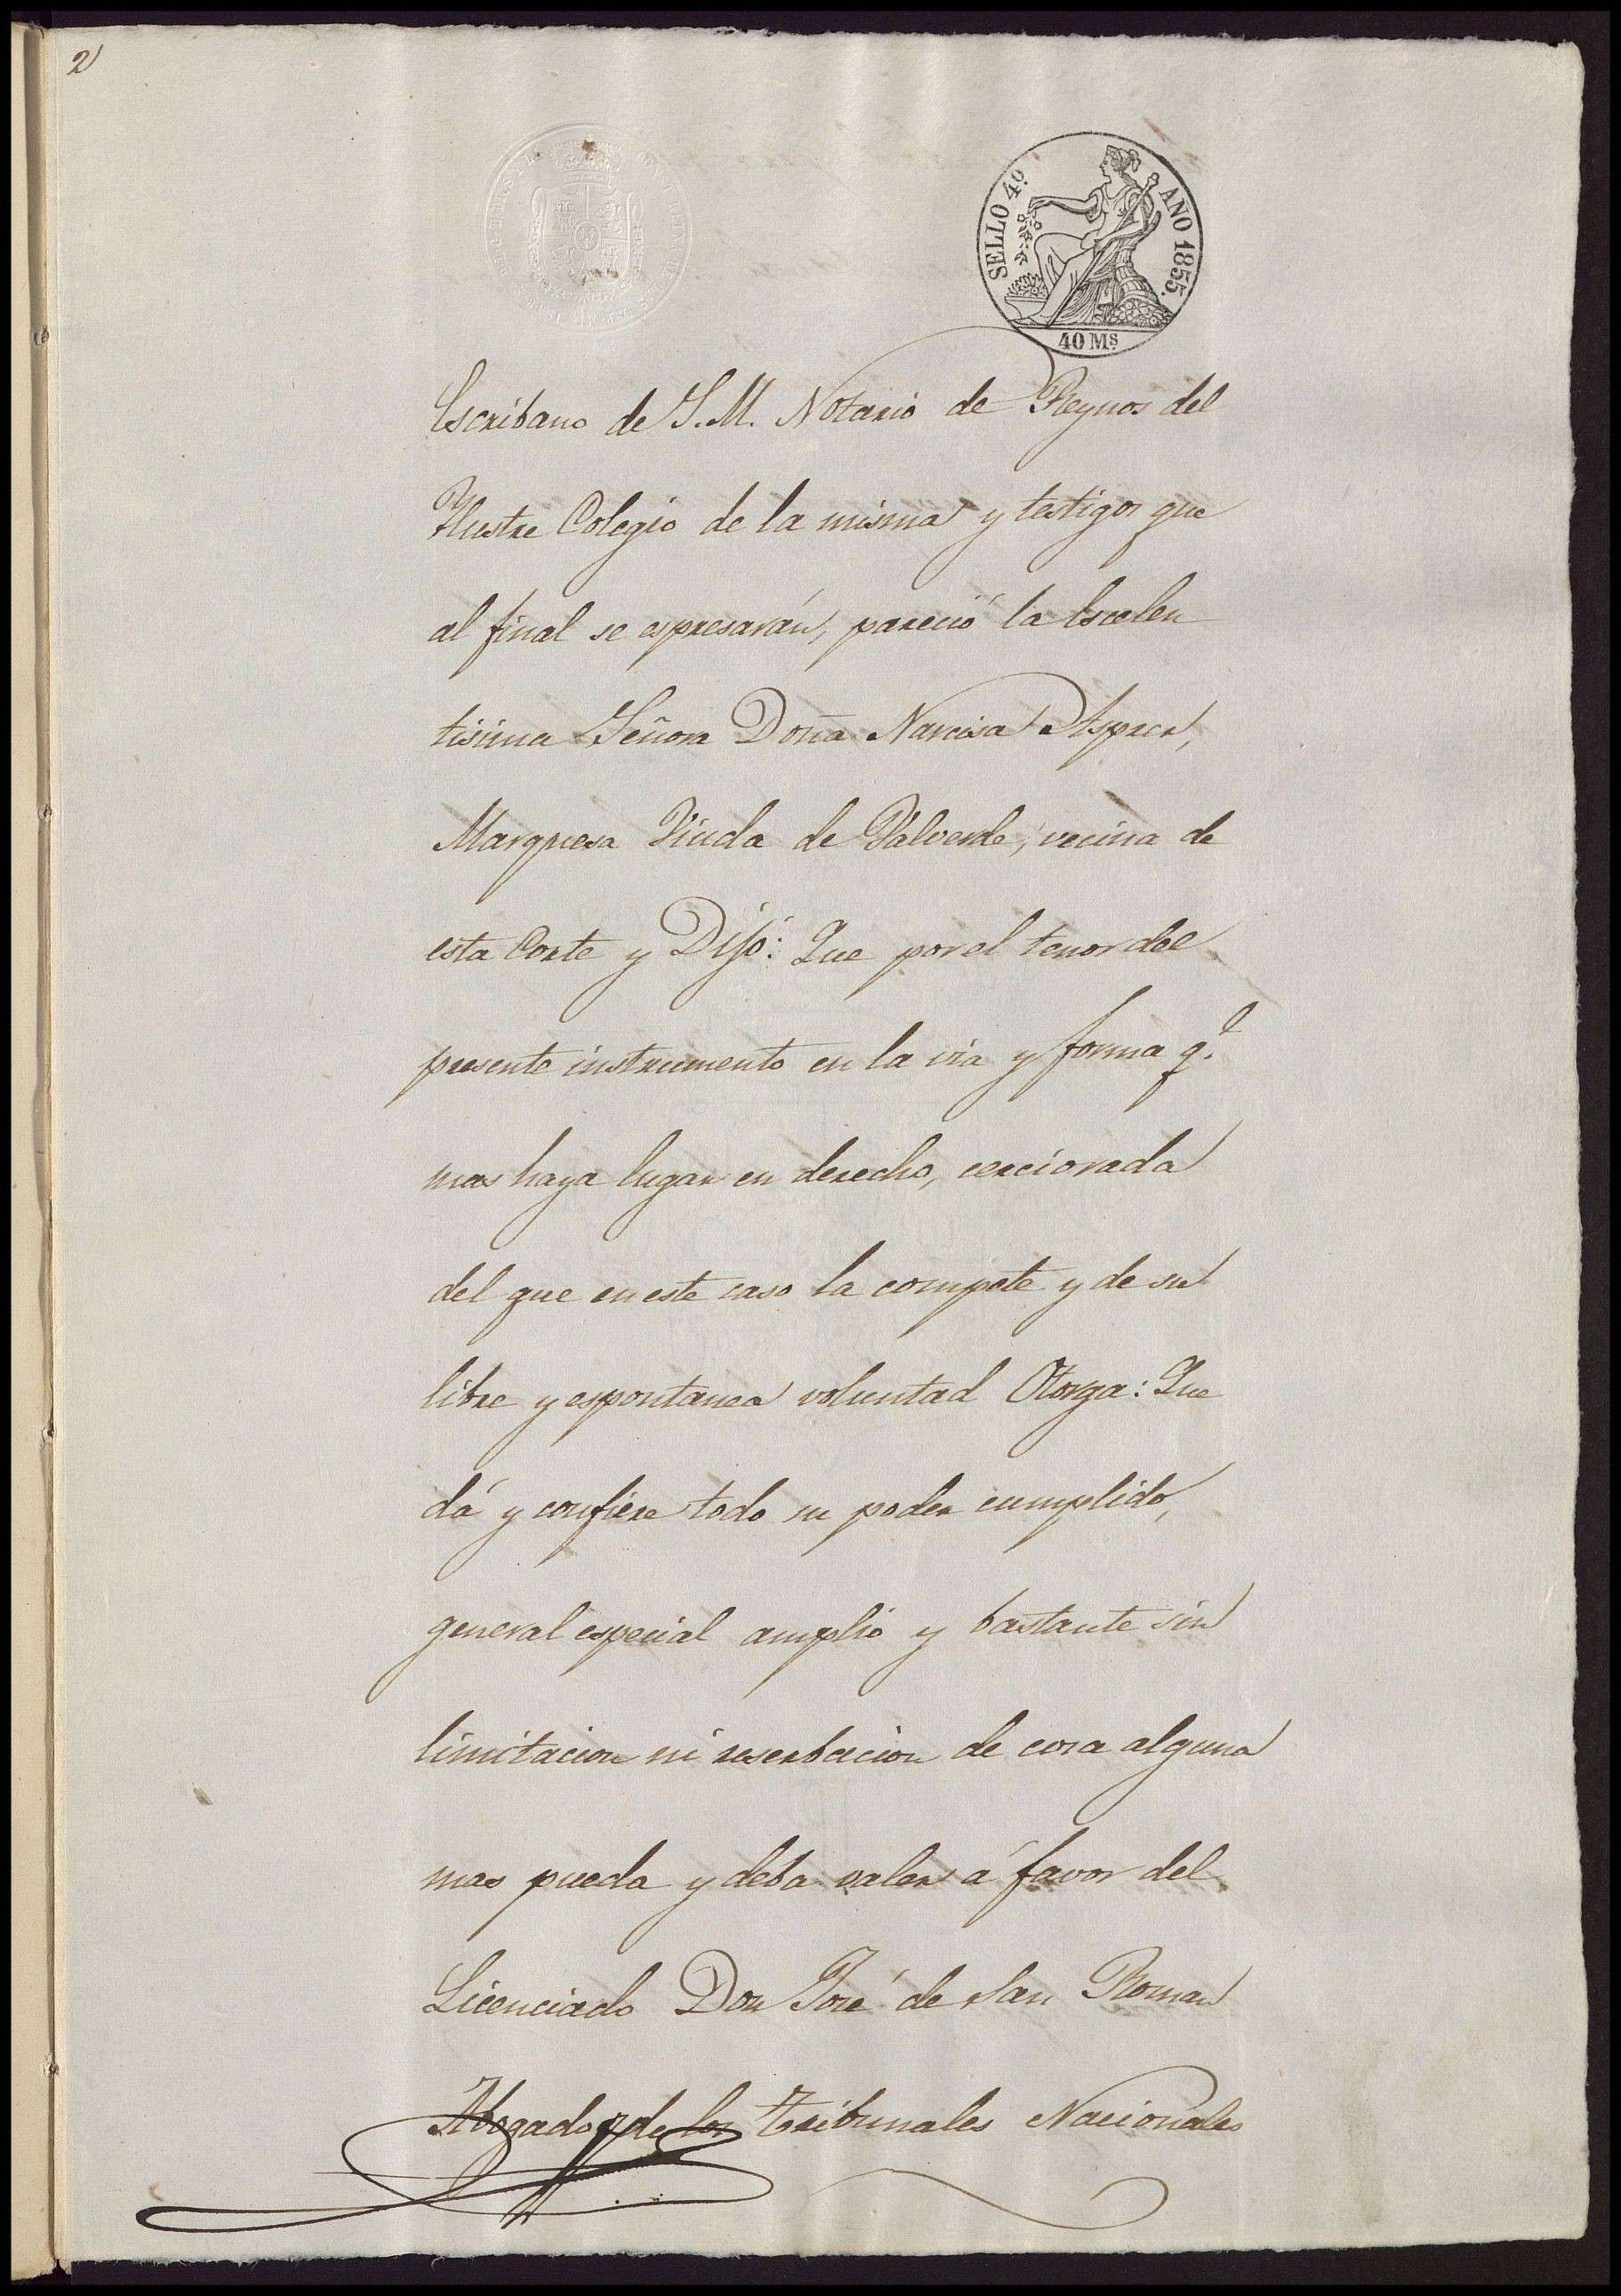 2
SELLO 4º
AÑO 1855.
40 Ms
Escribano de S.M. Notario de Reynos del
Ylustre Colegio de la misma y testigos que
al final se espresarán, pareció la Escelen
tisima Señora Doña Narcisa Asprer,
Marquesa Viuda de Valverde, vecina de
esta Corte y Dijo: Que por el tenor del
presente instrumento en la via y forma q.e
mas haya lugar en derecho, cerciorada
del que en este caso la compete y de su
libre y espontanea voluntad Otorga: Que
dá y confiere todo su poder cumplido,
general especial amplio y bastante sin
limitacion ni reserbacion de cosa alguna
mas pueda y deba valer á favor del
Licenciado Don José de San Roman
Abogado de los Tribunales Nacionales